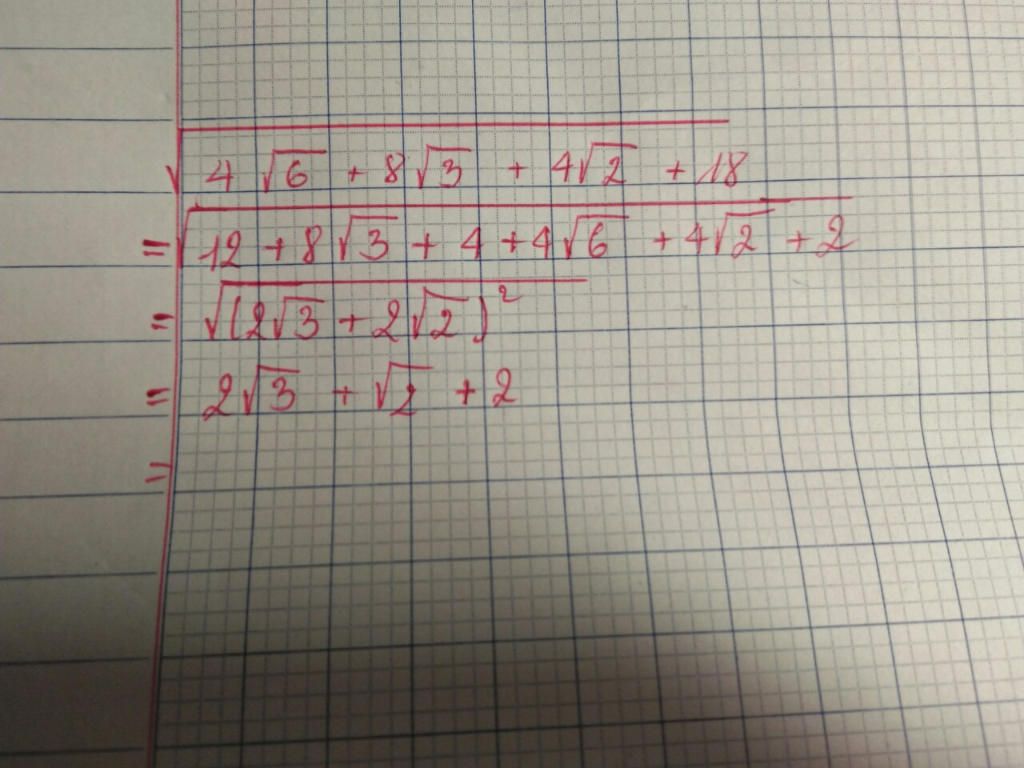 √(4√6 + 8√3 + 4√2 + 18)
= √(12 + 8√3 + 4 + 4√6 + 4√2 + 2)
= √((2√3 + 2√2)²)
= 2√3 + √2 + 2
=